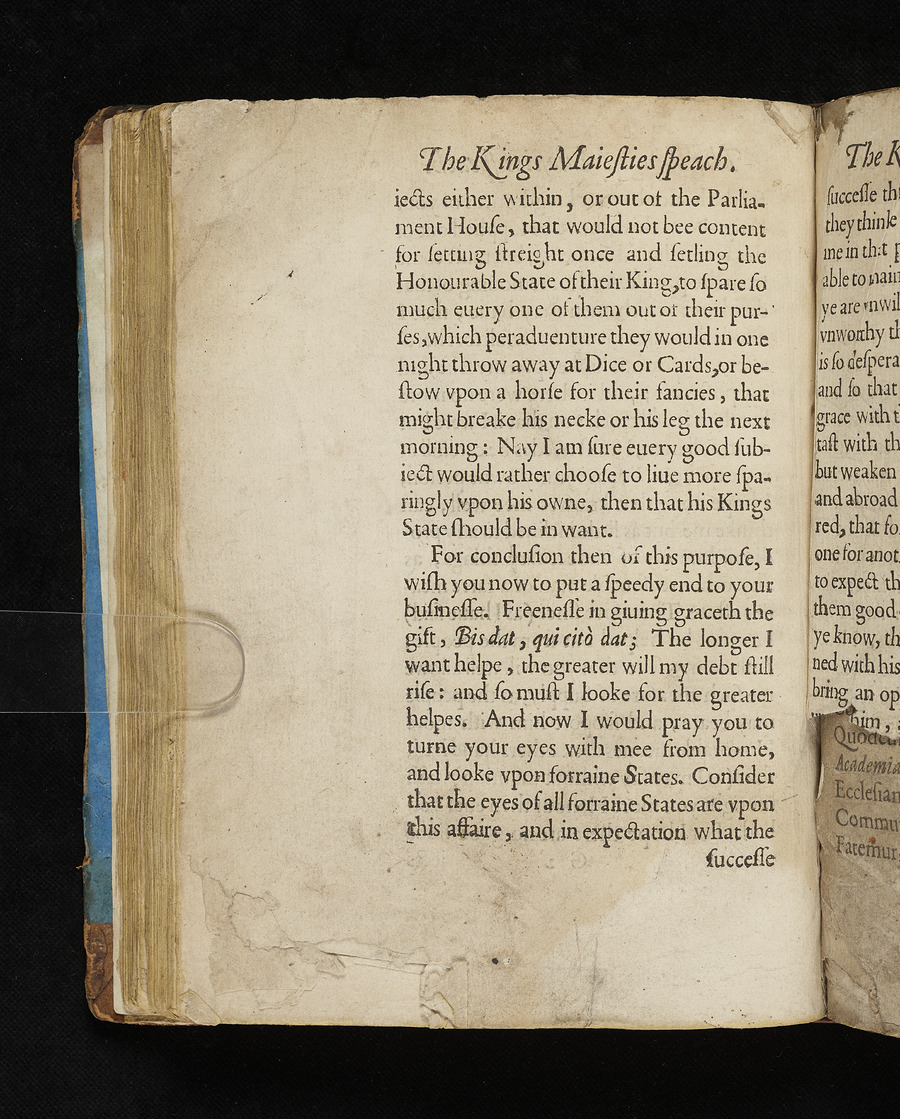 The Kings Maiesties speach.
iects either within, or out of the Parlia-
ment House, that would not bee content
for setting streight once and setling the
Honourable State of their King, to spare so
much euery one of them out of their pur-
ses, which peraduenture they would in one
night throw away at Dice or Cards, or be-
stow vpon a horse for their fancies, that
might breake his necke or his leg the next
morning: Nay I am sure euery good sub-
iect would rather choose to liue more spa-
ringly vpon his owne, then that his Kings
State should be in want.
For conclusion then of this purpose, I
wish you now to put a speedy end to your
businesse. Freenesse in giuing graceth the
gift, Bis dat, qui citò dat; The longer I
want helpe, the greater will my debt still
rise: and so must I looke for the greater
helpes. And now I would pray you to
turne your eyes with mee from home,
and looke vpon forraine States. Consider
that the eyes of all forraine States are vpon
this affaire, and in expectation what the
successe
The K
successe th
they thinke
me in that p
able to main
ye are vnwil
vnworthy th
is so despera
and so that
grace with t
tast with th
but weaken
and abroad
red, that fo
one for anot
to expect th
them good
ye know, th
ned with his
bring an op
him,
Academia
Ecclesian
Commu
Fatemur